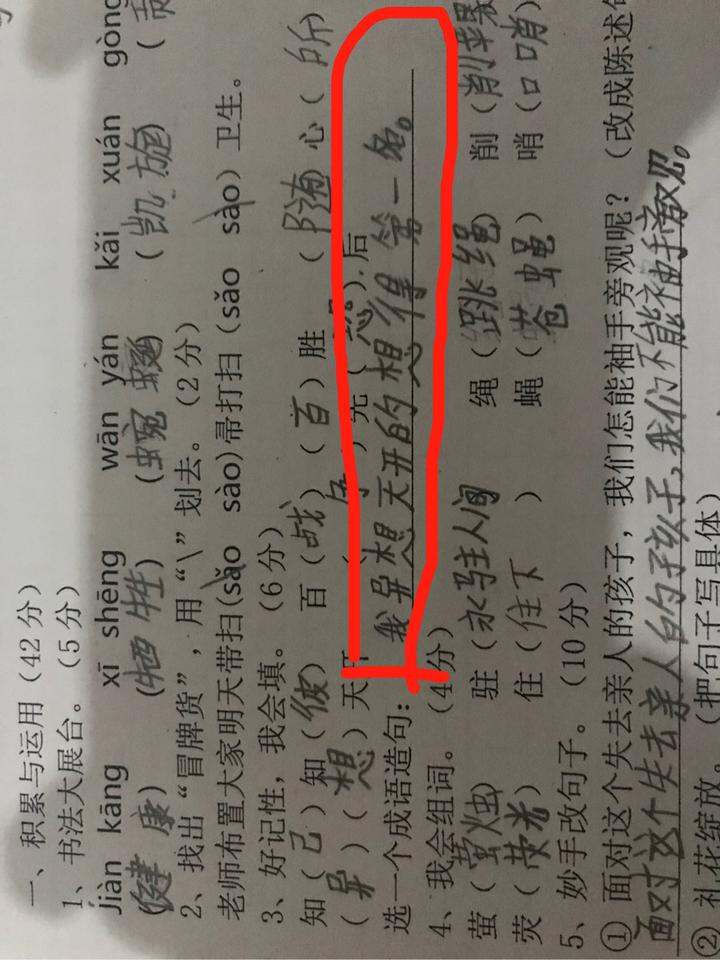 一、积累与运用（42分）
1、书法大展台。（5分）
jiàn kāng xī shēng wān yán kǎi xuán gòng
（健康）（牺牲）（蜿蜒）（凯旋）（贡
2、找出“冒牌货”，用“\”划去。（2分）
老师布置大家明天带扫(sǎo sào)帚打扫（sǎo sào）卫生。
3、好记性，我会填。（6分）
知（己）知（彼） 百（战）（百）胜 （随）心（所
（异）（想）天开 先（ ）后
选一个成语造句：我异想天开的想得第一名。
4、我会组词。（4分）
萤（萤烛 驻（永驻人间 绳（跳绳） 削（削
荧（荧光） 住（住下 ） 蝇（苍蝇） 哨（口哨）
5、妙手改句子。（10分）
① 面对这个失去亲人的孩子，我们怎能袖手旁观呢？（改成陈述句
面对这个失去亲人的孩子，我们不能袖手旁观。
② 礼花绽放。（把句子写具体）